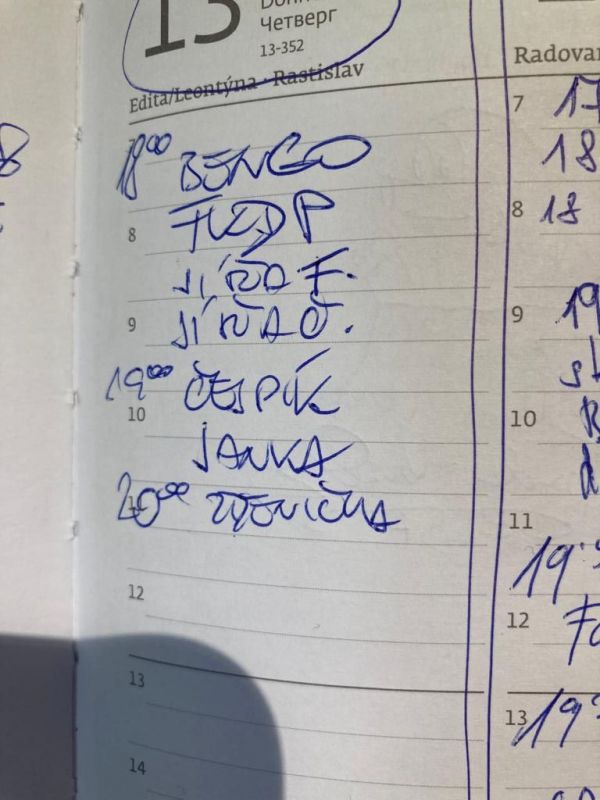 13
Четверг
13-352
Edita/Leontýna · Rastislav
18⁰⁰ BENGO
8
JÍRA F.
9 JÍRA O.
19⁰⁰ ČESPÍK
10
JANKA
20⁰⁰ ZDENIČKA
12
13
14
Radovan
7 17
18
8 18
9 19
10
11
19
12
13 19